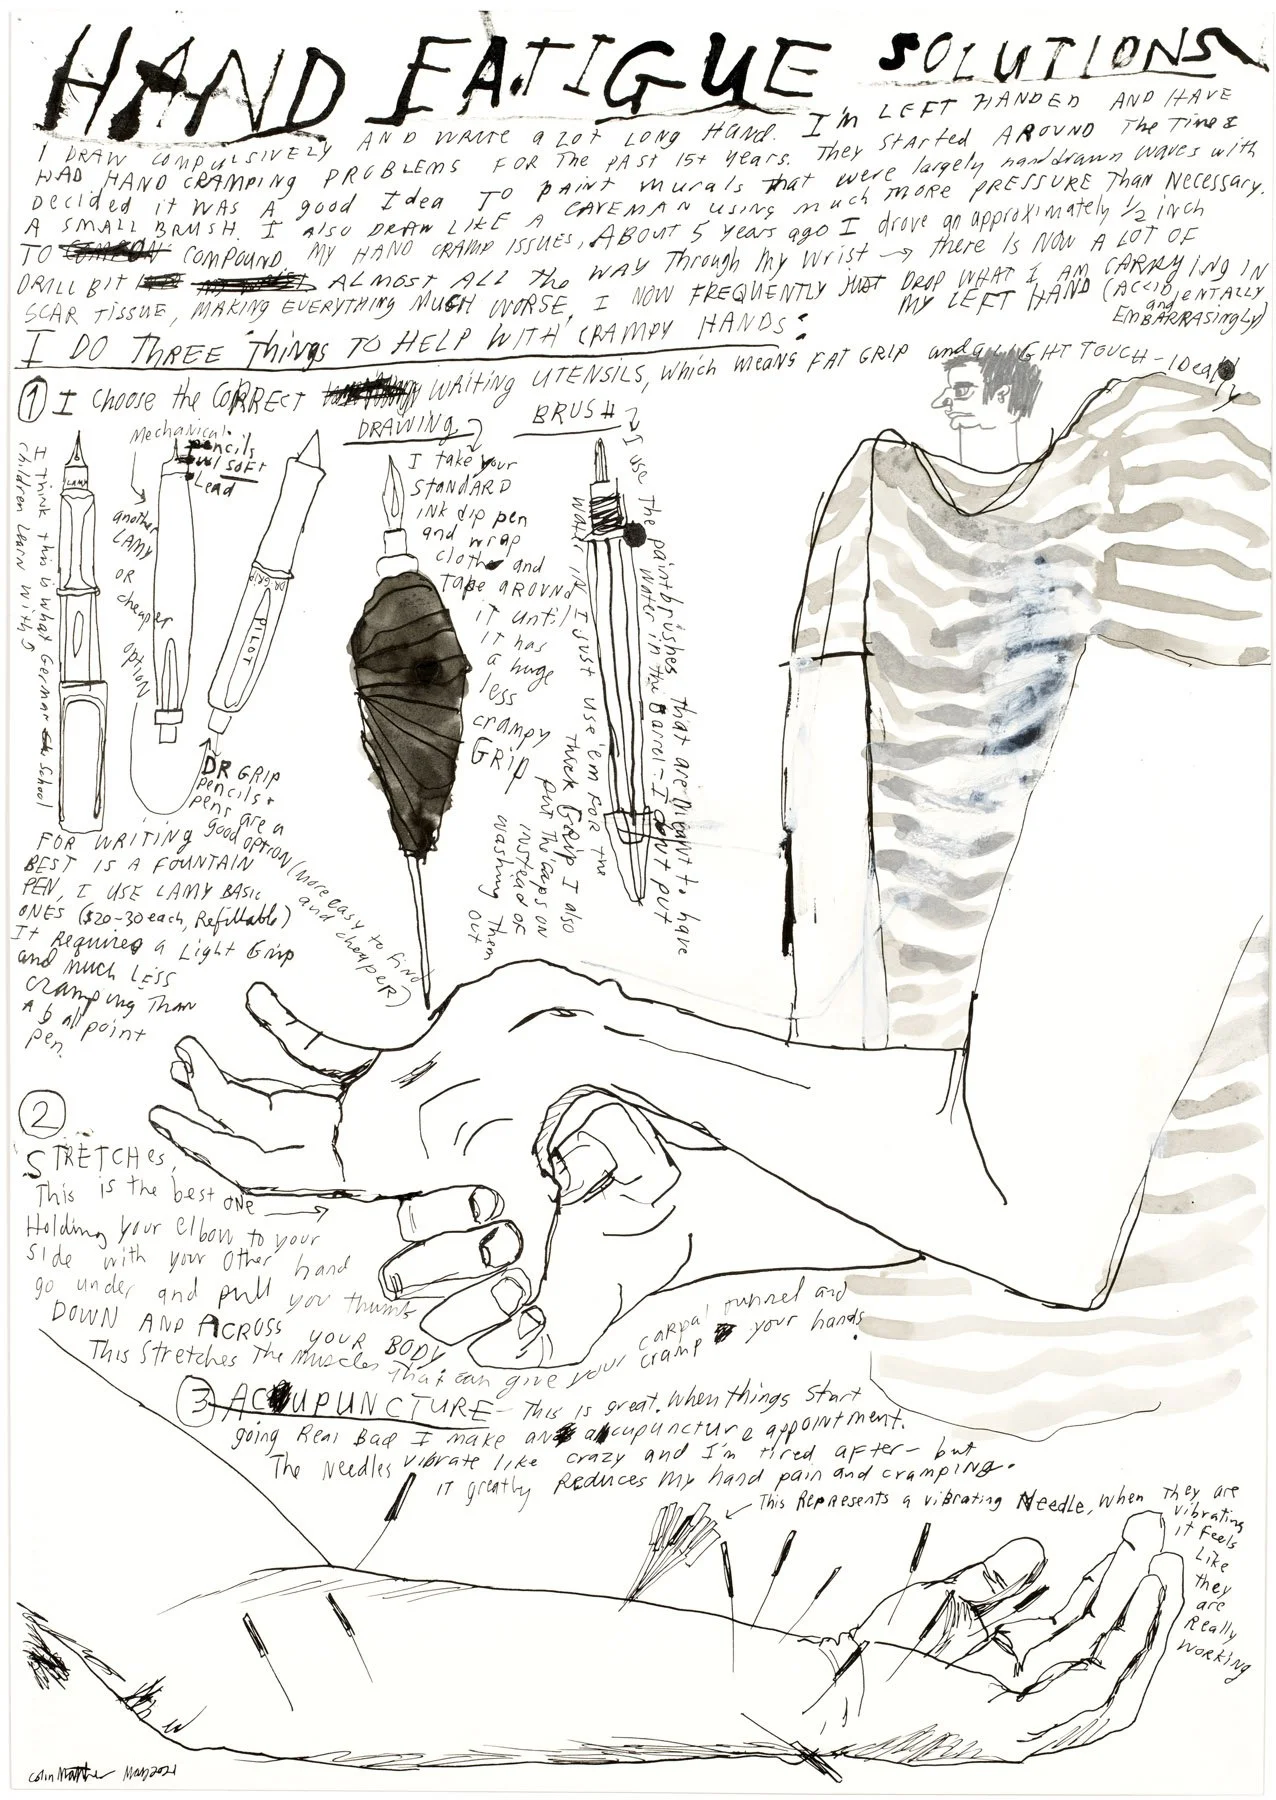 HAND FATIGUE SOLUTIONS
I DRAW COMPULSIVELY AND WRITE a LOT LONG HAND. I'm LEFT HANDED AND HAVE
HAD HAND CRAMPING PROBLEMS FOR The PAST 15+ years. They STARTED AROUND The Time I
Decided it WAS A good Idea TO paint murals That were largely handdrawn waves with
A SMALL BRUSH. I also DRAW LIKE A CAVEMAN using much MORE PRESSURE Than Necessary.
TO COMPOUND MY HAND CRAMP ISSUES, ABOUT 5 years ago I drove an approximately 1/2 inch
DRILL BIT ALMOST ALL the WAY Through My Wrist → there IS NOW A LOT OF
SCAR TISSUE, MAKING EVERYTHING MUCH WORSE, I NOW FREQUENTLY JUST DROP WHAT I AM CARRYING IN
MY LEFT HAND (ACCIDENTALLY
and
EMBARRASINGLY)
I DO THREE Things TO HELP WITH CRAMPY HANDS:
① I Choose the CORRECT WRITING UTENSILS, which means FAT GRIP and a LIGHT TOUCH - Ideally
I think this is what German School
children learn with
LAMY
Mechanical
pencils
w/ SOFT
Lead
another
LAMY
OR
cheaper
option
DR GRIP
PILOT
DR GRIP
pencils +
pens are a
good OPTION (More easy to find
and cheaper)
FOR WRITING
BEST IS A FOUNTAIN
PEN, I USE LAMY BASIC
ONES ($20-30 each, Refillable)
It Requires a Light Grip
and much LESS
cramping Than
A ball point
pen.
DRAWING
I take your
STANDARD
INK dip pen
and wrap
cloth and
Tape AROUND
it until
it has
a huge
less
crampy
GRIP
BRUSH
I use The paintbrushes That are meant to have
water in the barrel - I don't put
water in, I just use 'em FOR the
Thick GRIP I also
put the caps on
instead of
washing them
out
②
STRETCHes,
This is the best one →
Holding your elbow to your
side with your other hand
go under and pull you thumb
DOWN AND ACROSS YOUR BODY
This Stretches The muscles That can give your carpal tunnel and
cramp your hands
③ ACUPUNCTURE - This is great. When things start
going Real Bad I make an acupuncture appointment.
The Needles vibrate like crazy and I'm tired after - but
it greatly Reduces my hand pain and cramping.
This Represents a vibrating Needle, when they are
vibrating
it Feels
Like
they
are
Really
working
Colin Matthes May 2021